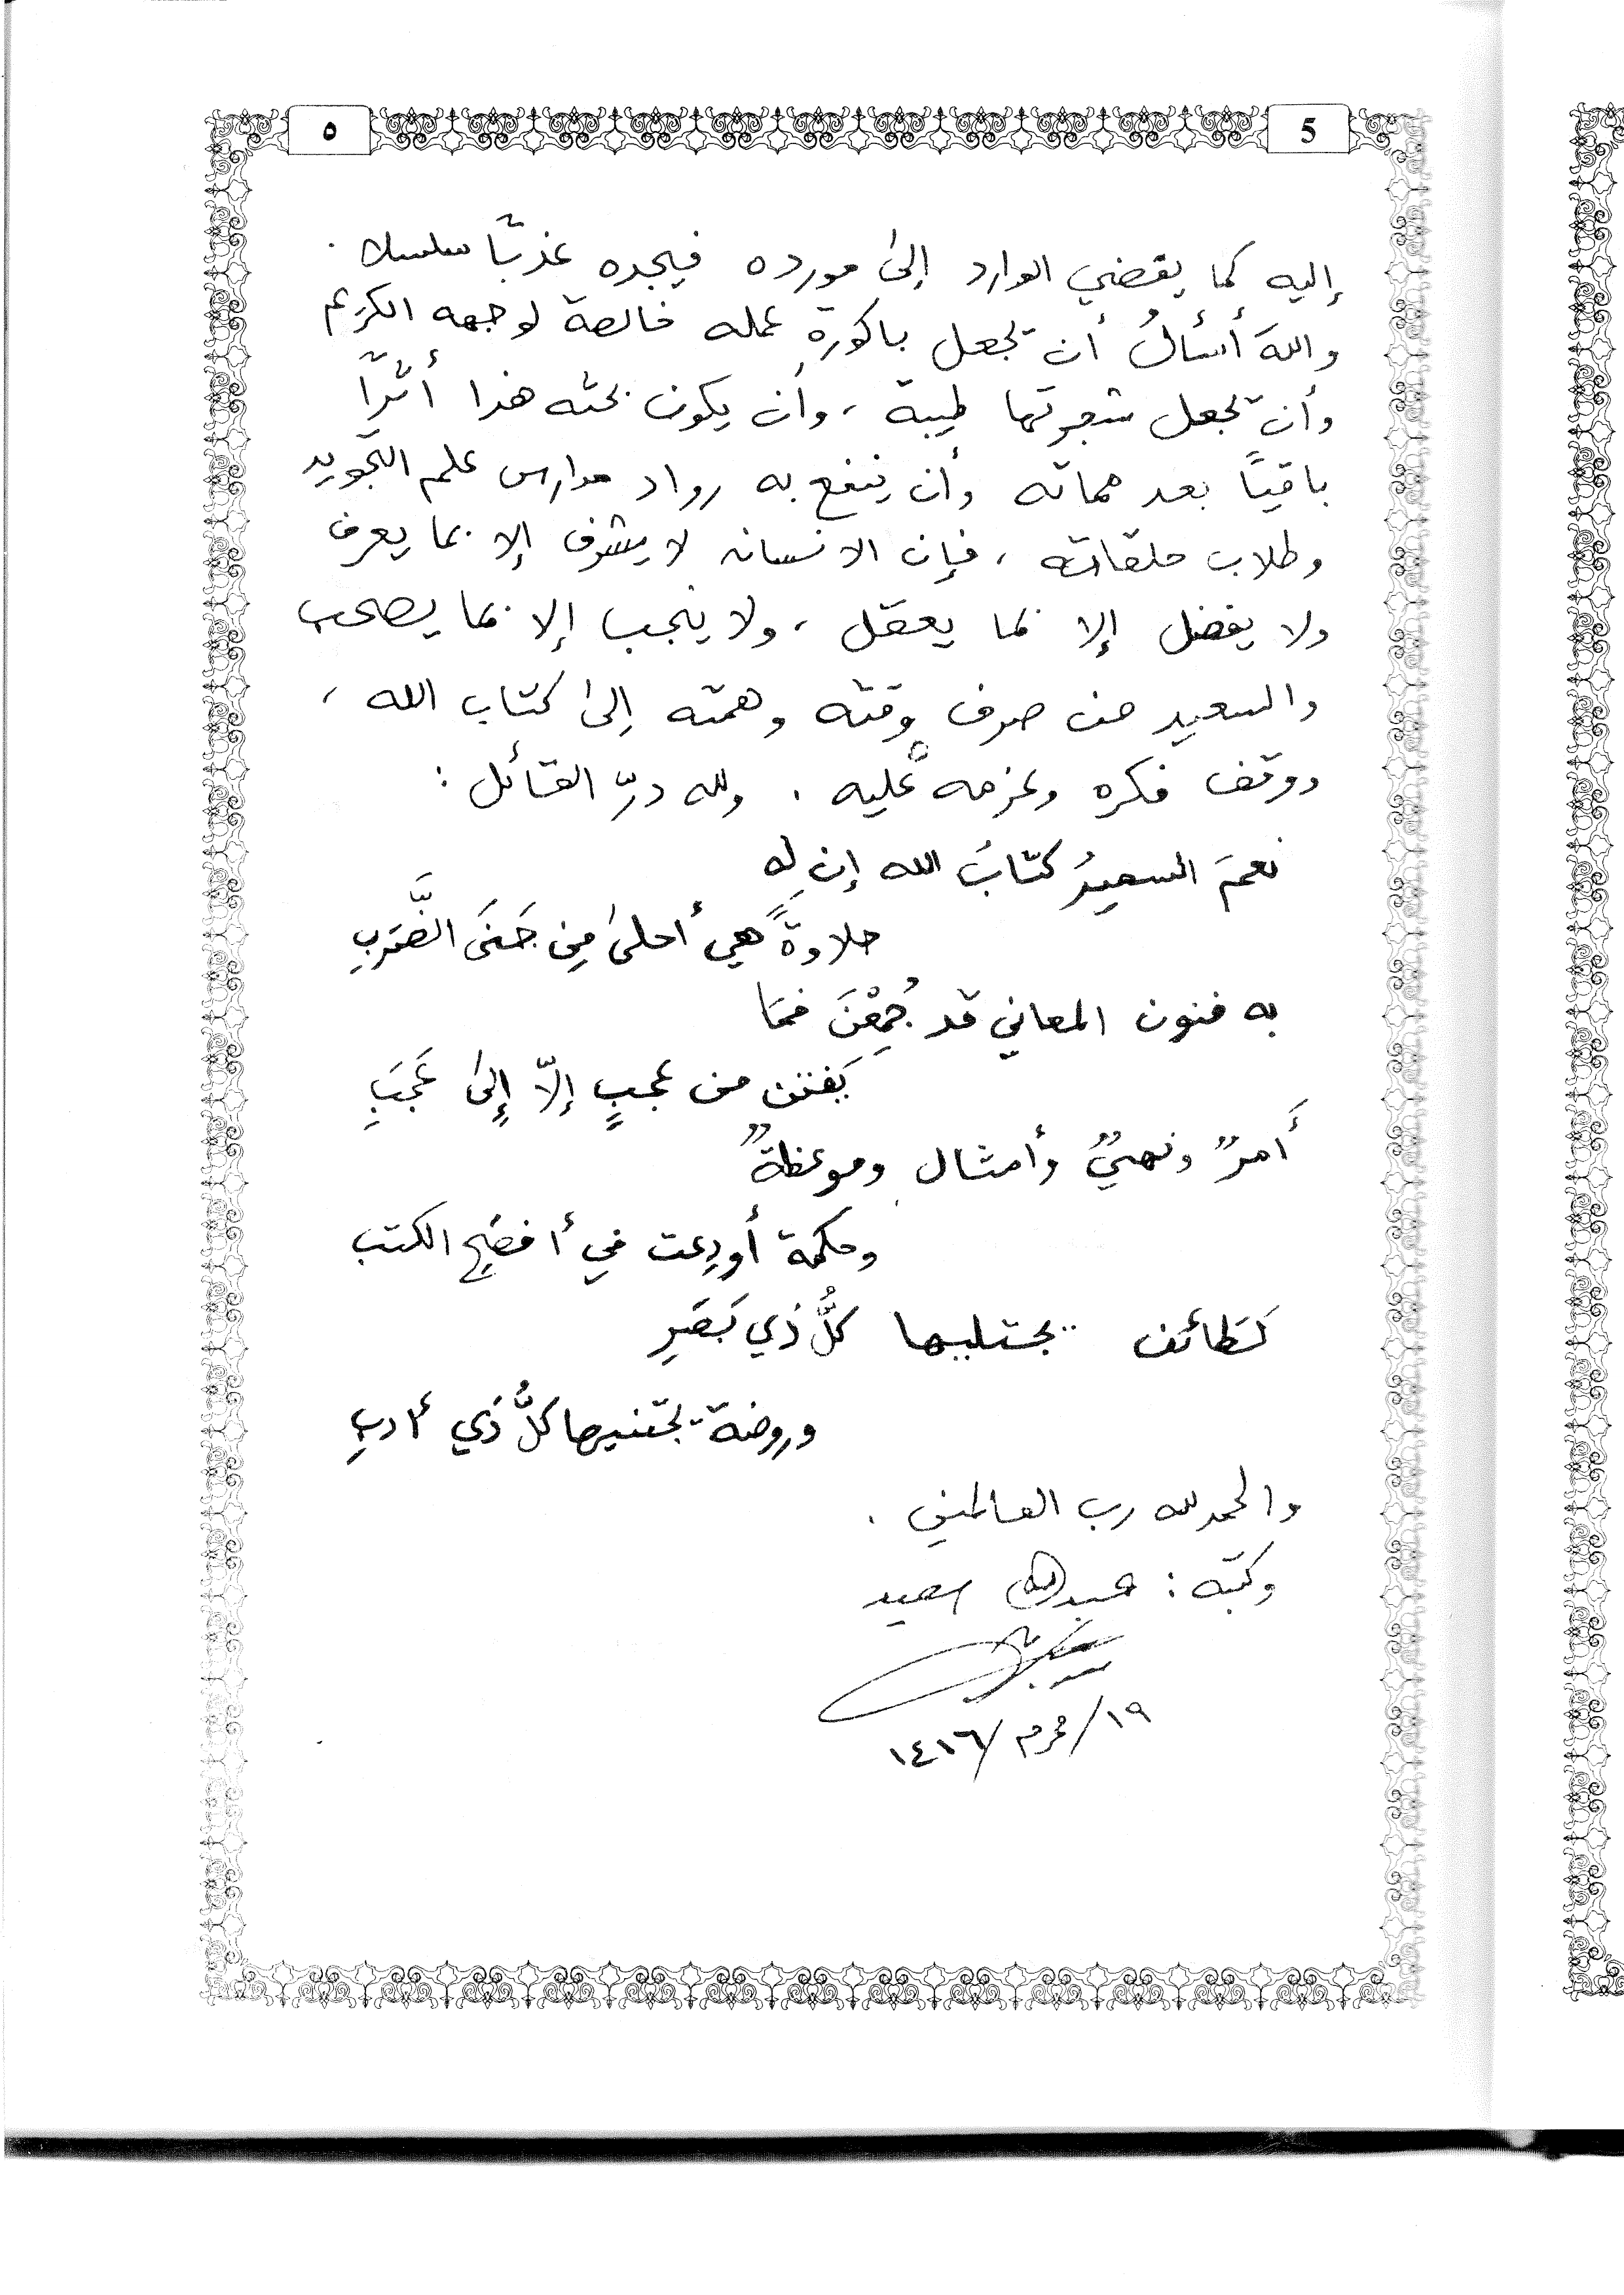 ٥
5
إليه كما يفضي الوارد إلى مورده فيجده عذبًا سلسلا .
واللهَ أسألُ أن يجعل باكورةِ عمله خالصة لوجهه الكريم
وأن يجعل شجرتها طيبة ، وأن يكون بحثه هذا أثرًا
باقيًا بعد مماته وأن ينفع به رواد مدارس علم التجويد
وطلاب حلقاته ، فإن الانسان لا يشرف إلا بما يعرف
ولا يفضل إلا بما يعقل ، ولا ينجب إلا بما يصحب
والسعيد من صرف وقته وهمته إلى كتاب الله ،
ووقف فكره وعزمه عليه . ولله درّ القائل :
نعمَ السميرُ كتابُ الله إن له
حلاوةً هي أحلى مِن جَنَى الضَّرَبِ
به فنون المعاني قد جُمِعْنَ فمَا
يَفتن من عجبٍ إلّا إِلى عَجَبِ
أَمرٌ ونهيٌ وأمثال وموعظةٌ
وحكمة أودِعت في أفصَحِ الكتب
لَطائف يجتليها كلُّ ذي بَصَرِ
وروضة يجتنيها كلُّ ذي أدبِ
والحمد لله رب العالمين .
وكتبه : عبدالله سعيد
١٩/محرم/١٤١٦